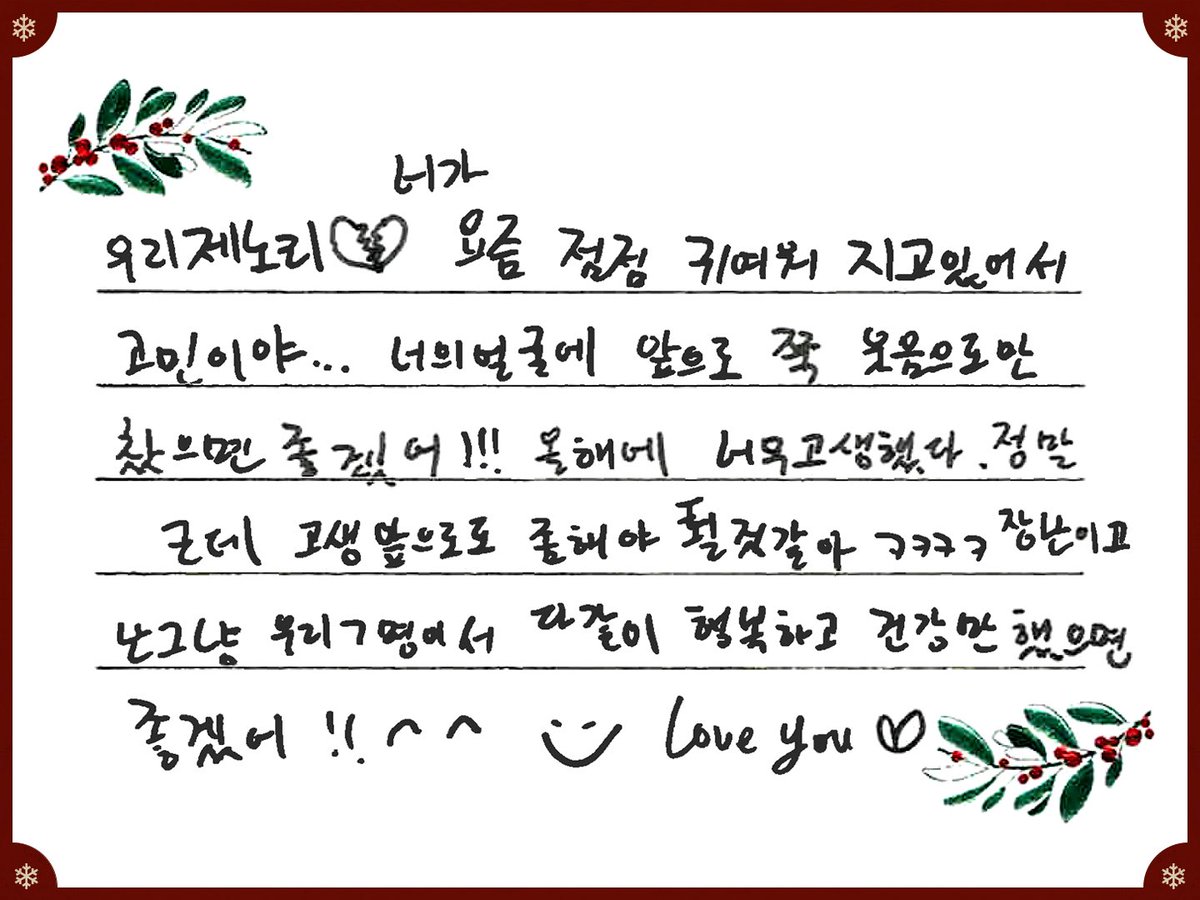 네가
우리제노리 요즘 점점 귀여워 지고있어서
고민이야... 너의얼굴에 앞으로 쭉 웃음으로만
찼으면 좋겠어!!! 올해에 너무고생했다. 정말
근데 고생앞으로도 좀해야 될것같아 ㅋㅋㅋㅋ 장난이고
난그냥 우리7명에서 다같이 행복하고 건강만 했으면
좋겠어!! ^^ Love you